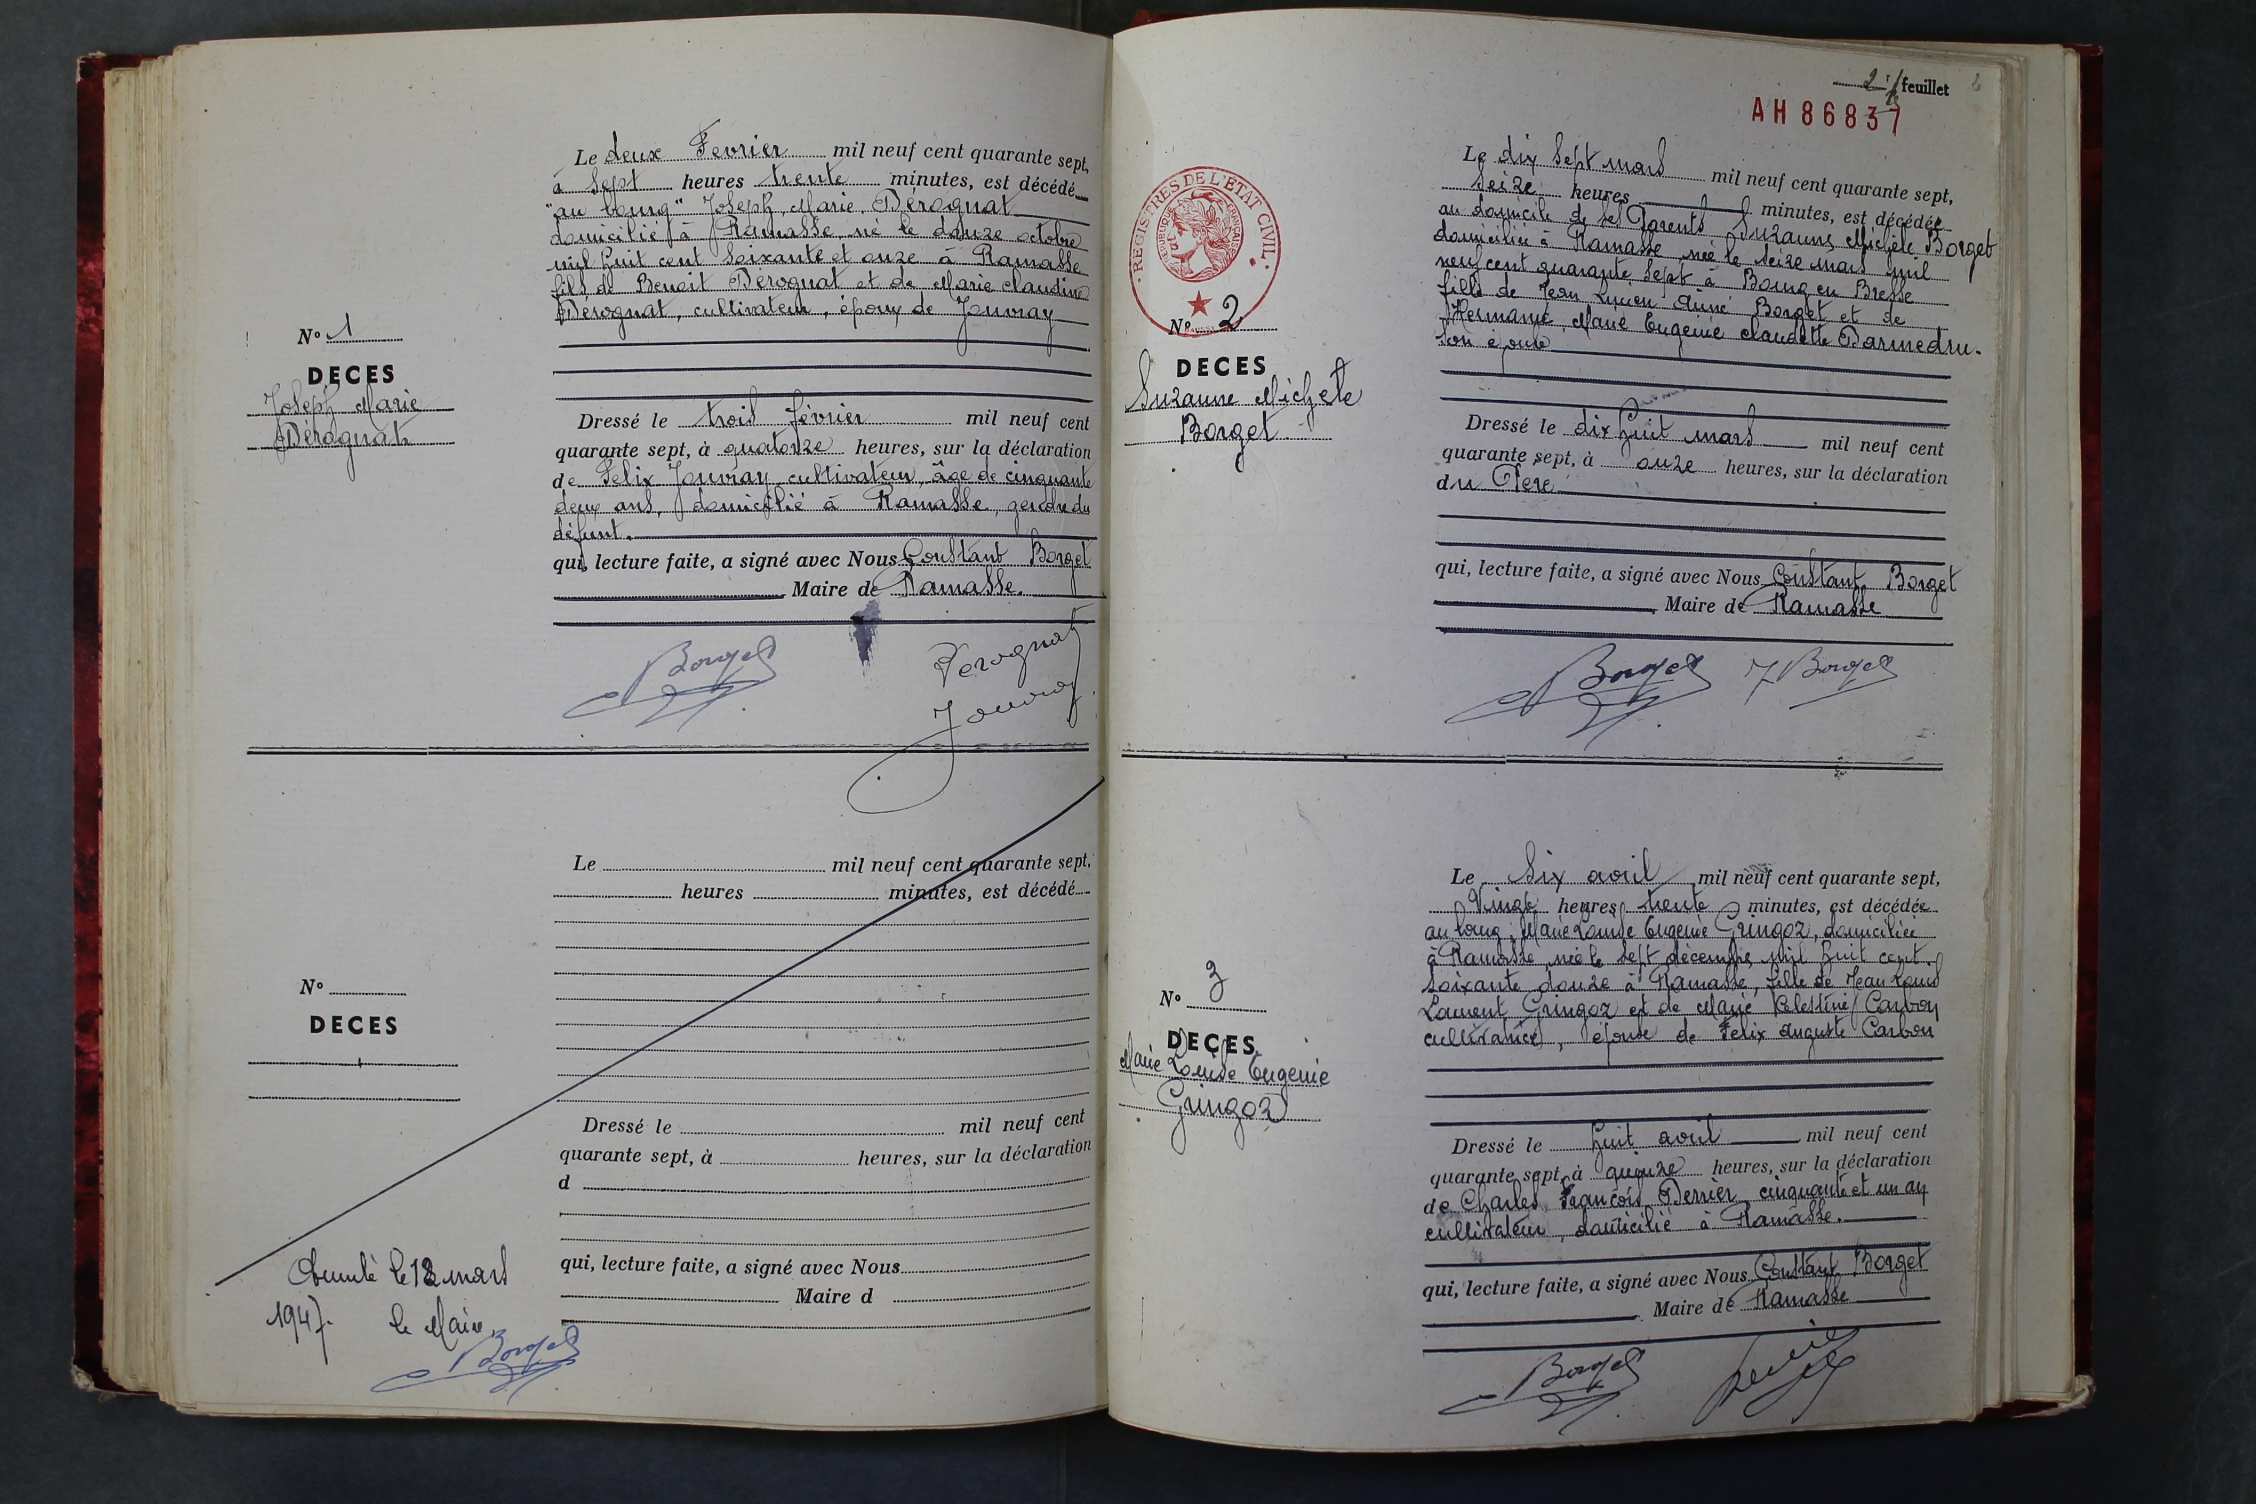 Le deux Fevrier mil neuf cent quarante sept,
à sept heures trente minutes, est décédé
"au bourg" Joseph, Marie, Dérognat
domicilié à Ramasse, né le douze octobre
mil huit cent soixante et onze à Ramasse
fils de Benoit Dérognat et de Marie claudine
Dérognat, cultivateur, époux de Jouvray
N° 1
DECES
Joseph Marie
Dérognat
Dressé le trois février mil neuf cent
quarante sept, à quatorze heures, sur la déclaration
de Felix Jouvray cultivateur, âgé de cinquante
deux ans, domicilié à Ramasse, gendre du
défunt.
qui, lecture faite, a signé avec Nous Constant Borget
Maire de Ramasse.
Borget
Derognat
Jouvray
Le mil neuf cent quarante sept,
heures minutes, est décédé
N°
DECES
Dressé le mil neuf cent
quarante sept, à heures, sur la déclaration
d
qui, lecture faite, a signé avec Nous
Maire d
Annulé le 18 mars
1947. le Maire
Borget
2 feuillet 2
AH 86837
REGISTRES DE L'ETAT CIVIL
REPUBLIQUE FRANÇAISE
Le dix sept mars mil neuf cent quarante sept,
seize heures minutes, est décédée
au domicile de ses Parents Suzanne Michèle Borget
domiciliée à Ramasse née le seize mars mil
neuf cent quarante sept à Bourg en Bresse
fille de Jean Lucien Aimé Borget et de
Hermanie, Marie Eugenie Claudette Darmedru.
son épouse
N° 2
DECES
Suzanne Michele
Borget
Dressé le dix huit mars mil neuf cent
quarante sept, à onze heures, sur la déclaration
du Père
qui, lecture faite, a signé avec Nous Constant Borget
Maire de Ramasse
Borget J Borget
Le Six avril mil neuf cent quarante sept,
Vingt heures trente minutes, est décédée
au bourg, Marie Louise Eugenie Gringoz, domiciliée
à Ramasse née le sept décembre mil huit cent
soixante douze à Ramasse, fille de Jean Louis
Laurent Gringoz et de Marie Celestine Carbon
cultivatrice, épouse de Felix Auguste Carbon
N° 3
DECES
Marie Louise Eugenie
Gringoz
Dressé le huit avril mil neuf cent
quarante sept, à quinze heures, sur la déclaration
de Charles François Derrier cinquante et un an
cultivateur, domicilié à Ramasse.
qui, lecture faite, a signé avec Nous Constant Borget
Maire de Ramasse
Borget